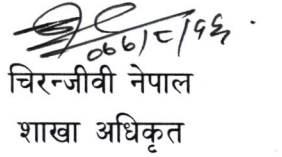 ०६६/८/१६
चिरन्जीवी नेपाल
शाखा अधिकृत